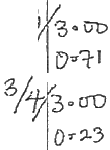 1/ 3.00
0=71
3/4/ 3.00
0=23